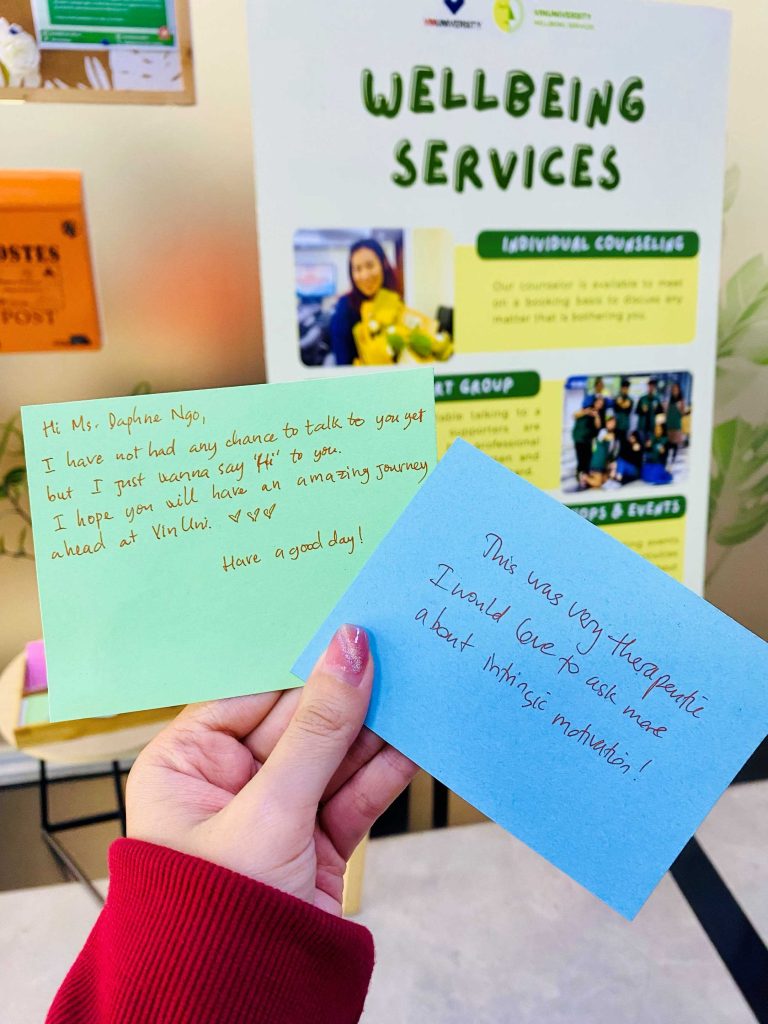 VINUNIVERSITY
VINUNIVERSITY
WELLBEING SERVICES
WELLBEING
SERVICES
INDIVIDUAL COUNSELING
Our counselor is available to meet
on a booking basis to discuss any
matter that is bothering you.
OSTES
POST
RT GROUP
able talking to a
supporters are
professional
OPS & EVENTS
Hi Ms. Daphne Ngo,
I have not had any chance to talk to you yet
but I just wanna say "Hi" to you.
I hope you will have an amazing journey
ahead at VinUni. ♡♡♡
Have a good day!
This was very therapeutic
I would love to ask more
about intrinsic motivation!